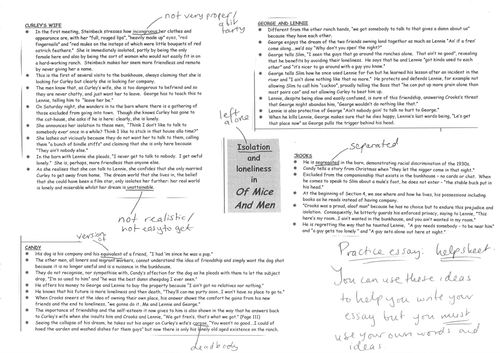 not very proper/
CURLEY'S WIFE
In the first meeting, Steinbeck stresses how incongruous her clothes and
appearance are, with her "full, rouged lips", "heavily made up" eyes, "red
fingernails" and "red mules on the insteps of which were little bouquets of red
ostrich feathers". She is immediately isolated, partly by being the only
female here and also by being the sort of woman who would not easily fit in a
hard-working ranch. Steinbeck makes her seem more friendless and remote
by never giving her a name.
This is the first of several visits to the bunkhouse, always claiming that she is
looking for Curley but clearly she is looking for company.
The men know that, as Curley's wife, she is too dangerous to befriend and so
they are never chatty, and just want her to leave. George has to teach this to
Lennie, telling him to "leave her be".
On Saturday night, she wanders in to the barn where there is a gathering of
those excluded from going into town. Though she knows Curley has gone to
the cat-house, she asks if he is here: clearly, she is lonely.
She announces her isolation to these men, "Think I don't like to talk to
somebody ever' once in a while? Think I like to stick in that house alla time?"
She lashes out viciously because they do not want her to talk to them, calling
them "a bunch of bindle stiffs" and claiming that she is only here because
"They ain't nobody else."
In the barn with Lennie she pleads, "I never get to talk to nobody. I get awful
lonely." She is, perhaps, more friendless than anyone else.
As she realises that she can talk to Lennie, she confides that she only married
Curley to get away from home. The dream world that she lives in, the belief
that she could have been a film star, only isolates her further: her real world
is lonely and miserable whilst her dream is unattainable.
not realistic/
not easy to get
left
alone
Isolation
and
loneliness
in
Of Mice
And Men
GEORGE AND LENNIE
Different from the other ranch hands, "we got somebody to talk to that gives a damn about us"
because they have each other.
George enjoys the dream of the two friends owning land together as much as Lennie "An' if a fren'
come along...we'd say 'Why don't you spen' the night?'"
George tells Slim, "I seen the guys that go around the ranches alone. That ain't no good", revealing
that he benefits by avoiding their loneliness. He says that he and Lennie "got kinda used to each
other" and "it's nicer to go around with a guy you know."
George tells Slim how he once used Lennie for fun but he learned his lesson after an incident in the
river and "I ain't done nothing like that no more." He protects and defends Lennie, for example not
allowing Slim to call him "cuckoo", proudly telling the Boss that "he can put up more grain alone than
most pairs can" and not allowing Curley to beat him up.
Lennie, despite being slow and easily confused, is sure of this friendship, answering Crook's threat
that George might abandon him, "George wouldn't do nothing like that."
Lennie is also protective of George "Ain't nobody goin' to talk no hurt to George."
When he kills Lennie, George makes sure that he dies happy, Lennie's last words being, "Le's get
that place now" as George pulls the trigger behind his head.
separated
CROOKS
He is segregated in the barn, demonstrating racial discrimination of the 1930s.
Candy tells a story from Christmas when "they let the nigger come in that night".
Excluded from the companionship that exists in the bunkhouse - no cards or chat. When
he comes to speak to Slim about a mule's foot, he does not enter - "the stable buck put in
his head."
At the beginning of Section 4, we see where and how he lives, his possessions including
books as he reads instead of having company.
"Crooks was a proud, aloof man" because he has no choice but to endure this prejudice and
isolation. Consequently, he bitterly guards his enforced privacy, saying to Lennie, "This
here's my room...I ain't wanted in the bunkhouse, and you ain't wanted in my room."
He is regretting the way that he taunted Lennie, "A guy needs somebody - to be near him"
and "a guy gets too lonely" and "A guy sets alone out here at night."
version
of
CANDY
His dog is his company and his equivalent of a friend, "I had 'im since he was a pup."
The other men, all loners and migrant workers, cannot understand the idea of friendship and simply want the dog shot
because it is no longer useful and is a nuisance in the bunkhouse.
They do not recognise, nor sympathise with, Candy's affection for the dog as he pleads with them to let the subject
drop, "I'm so used to him" and "he was the best damn sheepdog I ever seen."
He offers his money to George and Lennie to buy the property because "I ain't got no relatives nor nothing."
He knows that his future is more loneliness and then death, "They'll can me purty soon. I won't have no place to go to."
When Crooks sneers at the idea of owning their own place, his answer shows the comfort he gains from his new
friends and the end to loneliness, "we gonna do it. Me and Lennie and George."
The importance of friendship and the self-esteem it now gives to him is also shown in the way that he answers back
to Curley's wife when she insults him and Crooks and Lennie, "We got fren's, that's what we got." (Page 111)
Seeing the collapse of his dream, he takes out his anger on Curley's wife's corpse: "You wasn't no good. I could of
hoed the garden and washed dishes for them guys" but now there is only his lonely old aged existence on the ranch.
dead body
Practice essay helpsheet.
You can use these ideas
to help you write your
essay but you must
use your own words and
ideas